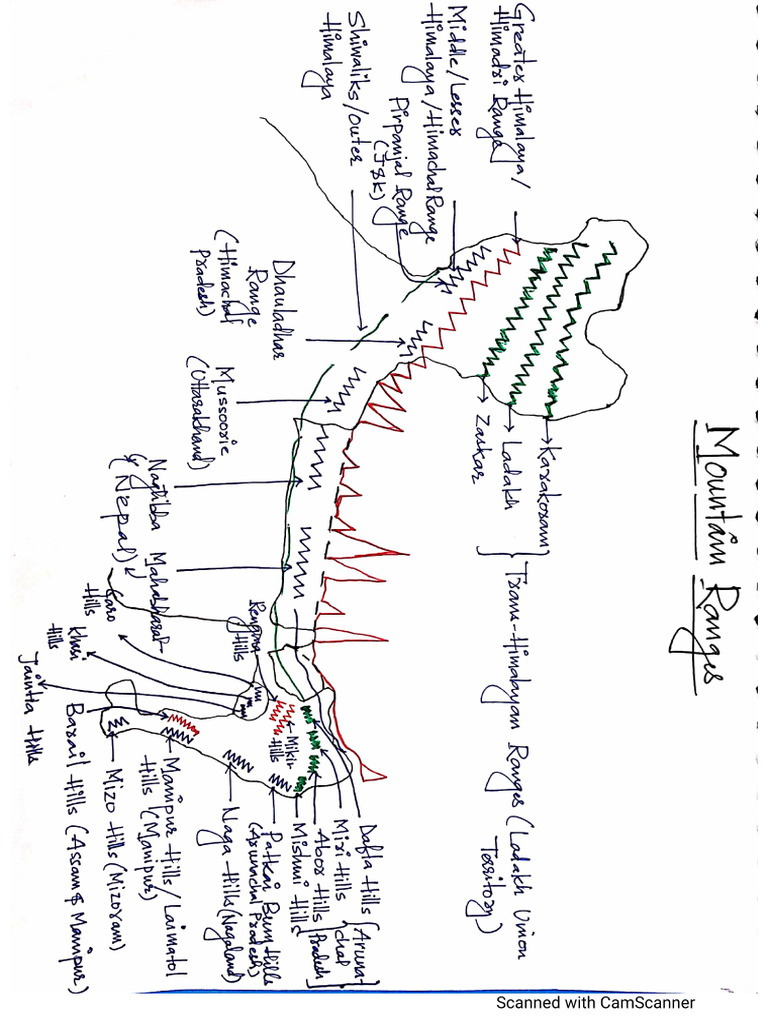 Mountain Ranges
Karakoram
Ladakh
Zaskar
Trans-Himalayan Ranges (Ladakh Union
Territory)
Greater Himalaya/
Himadri Range
Middle/Lesser
Himalaya/Himachal Range
Pirpanjal Range
(J&K)
Shiwaliks/Outer
Himalaya
Dhauladhar
Range
(Himachal
Pradesh)
Mussoorie
(Uttarakhand)
Nagtibba Mahabharat
(Nepal)
Garo
Hills
Khasi
Hills
Jaintia Hills
Rengma
Hills
Mikir
Hills
Dafla Hills
Miri Hills
Abor Hills
Mishmi Hills
(Arunachal
Pradesh)
Patkai Bum Hills
(Arunachal Pradesh)
Naga Hills (Nagaland)
Manipur Hills/Laimatol
Hills (Manipur)
Mizo Hills (Mizoram)
Barail Hills (Assam & Manipur)
Scanned with CamScanner